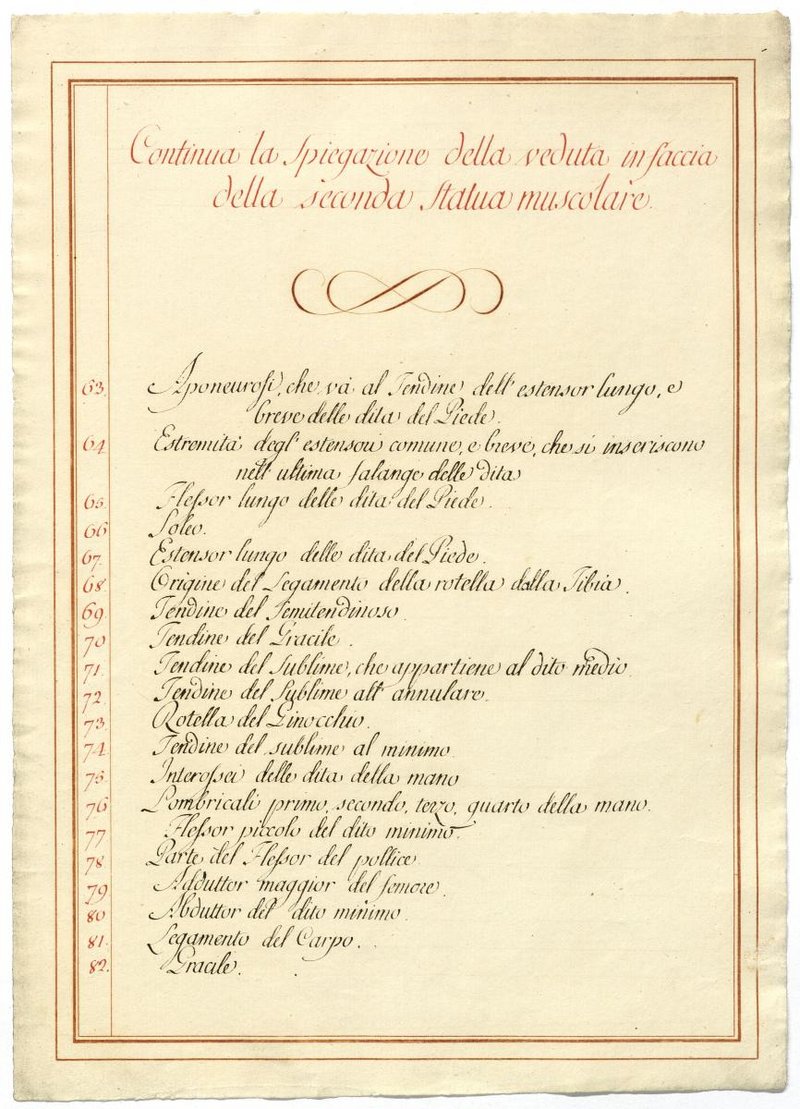 Continua la Spiegazione della veduta in faccia
della seconda statua muscolare.
63. Aponeurosi, che va al Tendine dell' estensor lungo, e
breve delle dita del Piede.
64 Estremità degl' estensori comune, e breve, che si inseriscono
nell' ultima falange delle dita
65. Flessor lungo delle dita del Piede.
66 Soleo.
67. Estensor lungo delle dita del Piede.
68 Origine del Legamento della rotella dalla Tibia.
69. Tendine del Semitendinoso
70 Tendine del Gracile.
71. Tendine del Sublime, che appartiene al dito medio
72. Tendine del Sublime all' annulare.
73. Rotella del Ginocchio.
74. Tendine del sublime al minimo
75. Interossei delle dita della mano
76 Lombricali primo, secondo, terzo, quarto della mano.
77 Flessor piccolo del dito minimo.
78 Parte del Flessor del pollice
79 Adduttor maggior del femore.
80 Abduttor del dito minimo.
81. Legamento del Carpo.
82. Gracile.